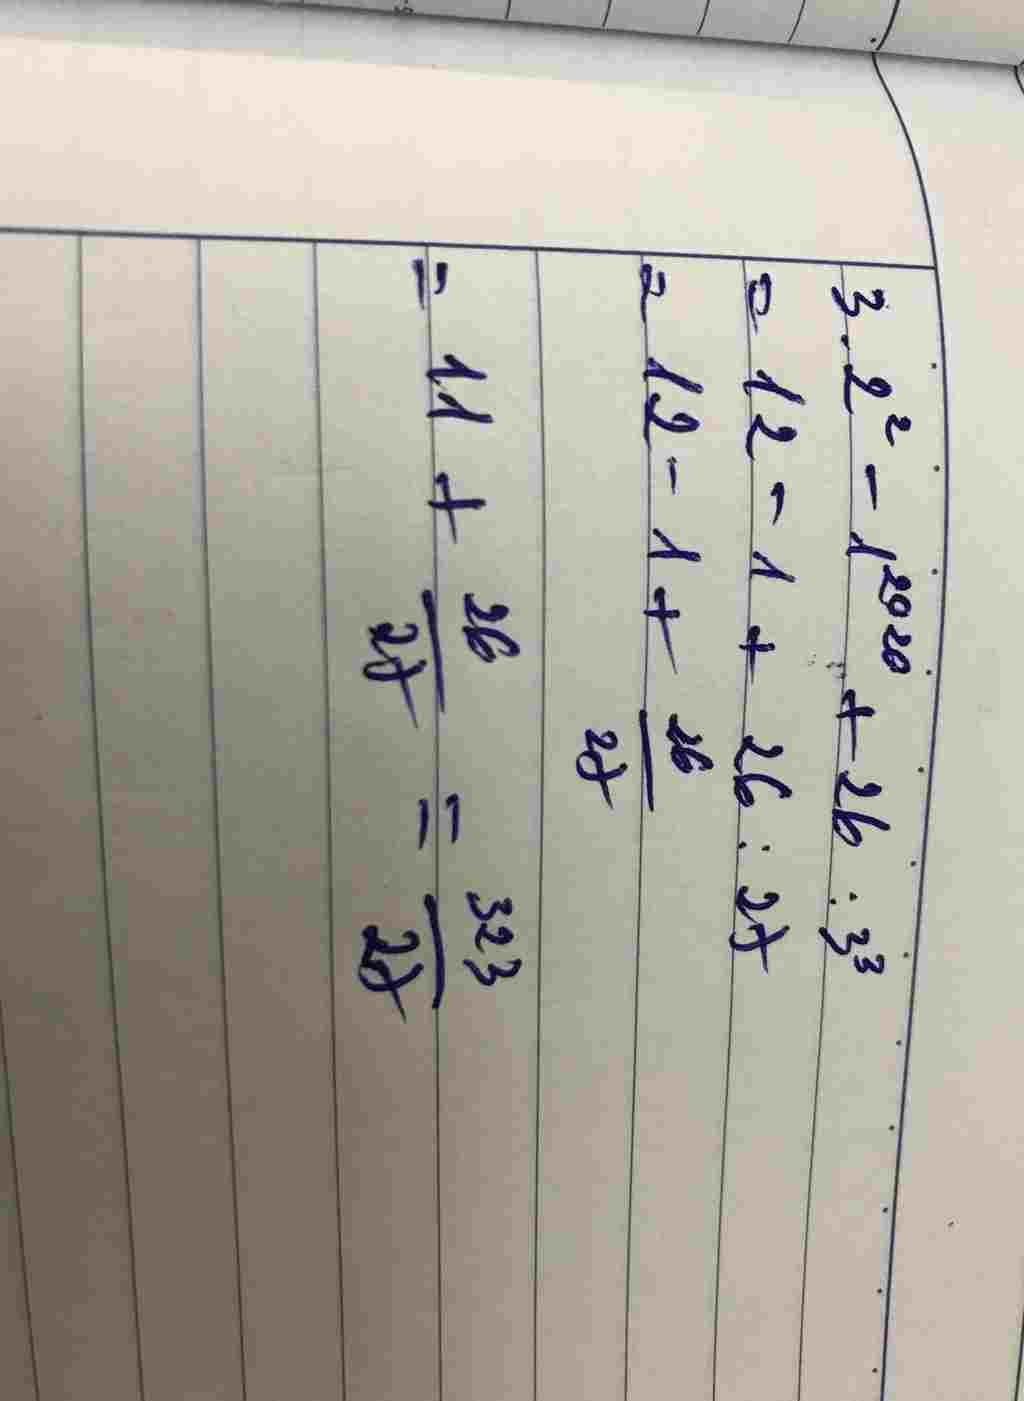 3.2² - 1²⁰²⁰ + 26 : 3³
= 12 - 1 + 26 : 27
= 12 - 1 + 26/27
= 11 + 26/27 = 323/27